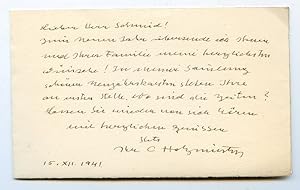 Lieber Herr Schmid!
Zum neuen Jahr übersende ich Ihnen
und Ihrer Familie meine herzlichsten
Wünsche! In meiner Sammlung
schöner Neujahrskarten stehen Ihre
an erster Stelle. Wo sind die Zeiten?
Lassen Sie wieder von sich hören
mit herzlichen Grüssen
Stets
Ihr C Holzmeister
15. XII. 1941